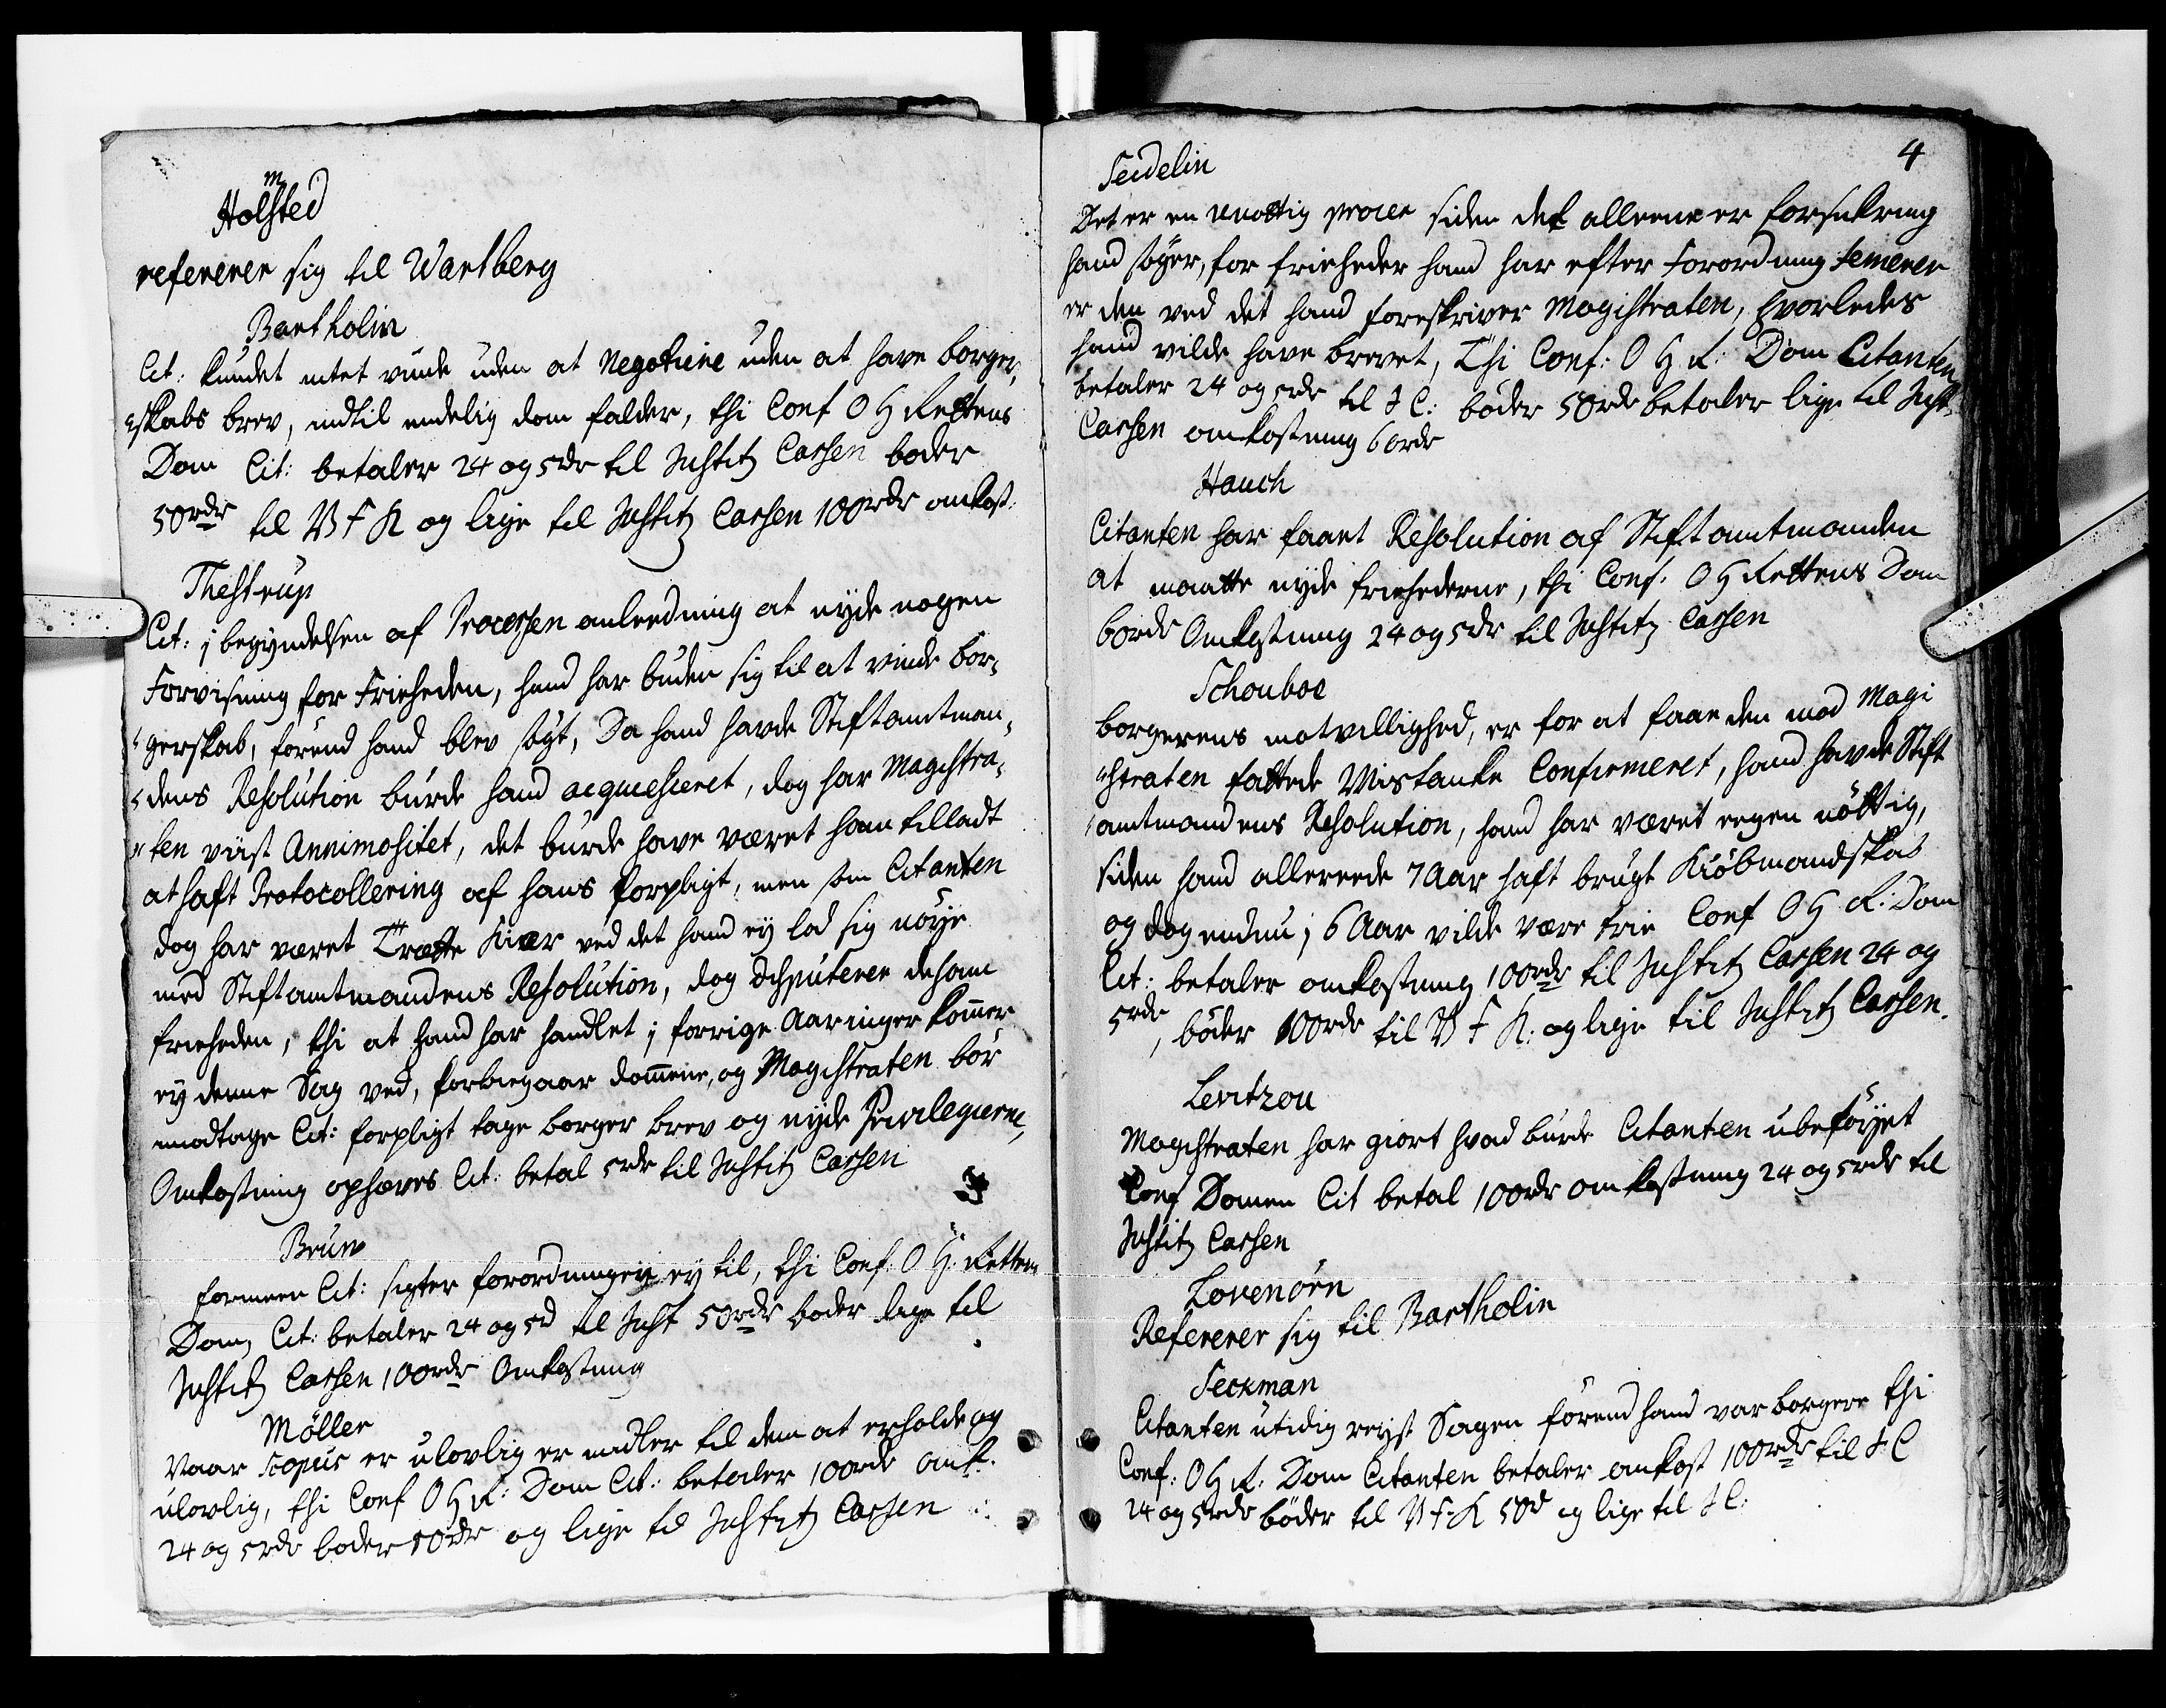 Holsted
m
refererer sig til Wartberg
Bartholin
Cit: kundet intet vinde uden at Negotiere uden at have borger,
skabs brev, indtil endelig dom falder, thi Conf O H Rettens
Dom Cit: betaler 24 og 5rdr til Justitz Cassen boder
50rdr til V F K og lige til Justitz Cassen 100rdr omkost:
Thestrup
Cit: i begyndelsen af Processen anleedning at nyde nogen
Forvisning for Frieheden, hand har buden sig til at vinde bor,
gerskab, førend hand blev søgt, Da hand havde Stiftamtman,
dens Resolution burde hand acquiesceret, dog har Magistra,
ten viist Annimositet, det burde have været ham tilladt
at haft Protocollering af hans forpligt, men som Citanten
dog har været Trætte Kiær ved det hand ey lod sig nøye
med Stiftamtmandens Resolution, dog disputerer de ham
frieheden, thi at hand har handlet i forrige Aaringer kommer
ey denne Sag ved, forbiegaar dommene, og Magistraten bør
imodtage Cit: forpligt tage borger brev og nyde Privilegierne,
Omkostning ophæves Cit: betal 5rdr til Justitz Cassen
Brun
formeen Cit: sigter forordningen ey til, thi Conf: O H. Rettens
Dom, Cit: betaler 24 og 5d til Just 50rdr boder lige til
Justitz Cassen 100rdr Omkostning
Møller
Naar Scopus er ulovlig er midler til dem at erholde og
ulovlig, thi Conf O H R: Dom Cit: betaler 100rdr omk:
24 og 5rdr boder 50rdr og lige til Justitz Cassen
4
Seidelin
Det er en unøttig proces siden det alleene er forsikring
hand søger, for frieheder hand har efter Forordning temerer
er den ved det hand foreskriver Magistraten, hvorledes
hand vilde have brevet, Thi Conf: O H R: Dom Citanten
betaler 24 og 5rdr til J C: bøder 50rdr betaler lige til Just.
Cassen omkostning 60rdr
Hauch
Citanten har faaet Resolution af Stiftamtmanden
at maatte nyde friehederne, thi Conf: O H Rettens Dom
60rdr Omkostning 24 og 5rdr til Justitz Cassen
Schouboe
borgerens motvillighed, er for at faae den mod Magi
straten fattede Mistanke Confirmeret, hand havde Stift
amtmandens Resolution, hand har været eegen nøttig,
siden hand allereede 7 Aar haft brugt Kiøbmandskab
og dog endnu i 6 Aar vilde være frie Conf O H R: Dom
Cit: betaler omkostning 100rdr til Justitz Cassen 24 og
5rdr, bøder 100rdr til V F K: og lige til Justitz Cassen.
Levitzou
Magistraten har giort hvad burde Citanten ubeføyet
Conf Domen Cit betal 100rdr omkostning 24 og 5rdr til
Justitz Cassen
Lovenørn
Refererer sig til Bartholin
Seckman
Citanten utidig reyst Sagen førend hand var borgere thi
Conf: O H R: Dom Citanten betaler omkost 100rdr til J C
24 og 5rdr bøder til V F K 50d og lige til J C: